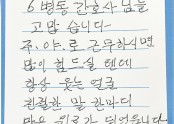 6병동 간호사님들
고맙습니다-
주.야.로 근무하시면
많이 힘드실 텐데
항상 웃는 얼굴
친절한 말 한마디
많은 위로가 되었읍니다